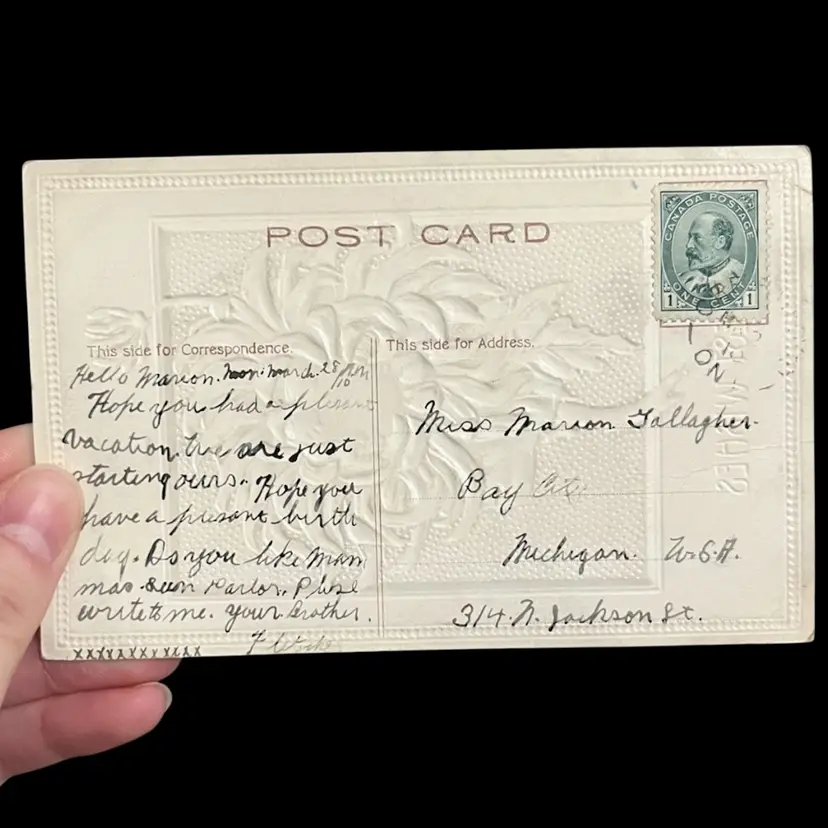 POST CARD
CANADA POSTAGE
1 ONE CENT 1
This side for Correspondence.
Hello Marion. March. 28/10
Hope you had a plesant
vacation. We are just
starting ours. Hope you
have a presant birth
day. Do you like Mam
mas. Sun Parlor. Plese
write to me. your Brother.
Fletcher
xxxxxxxxxxxx
This side for Address.
Miss Marion Gallagher.
Bay City
Michigan. U.S.A.
314. N. Jackson St.
ON